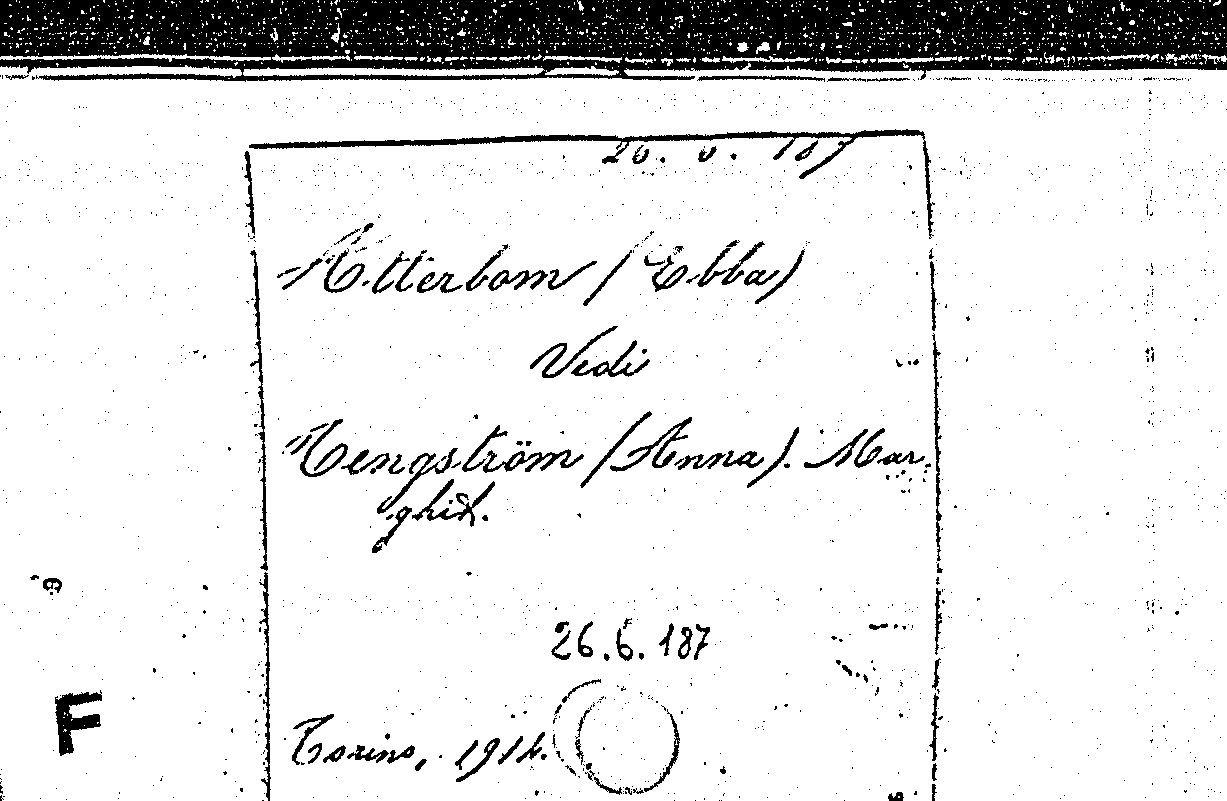 26. 6. 187
Atterbom (Ebba)
Vedi
Tengström (Anna). Mar-
ghit.
26.6.187
F
Torino, 1914.